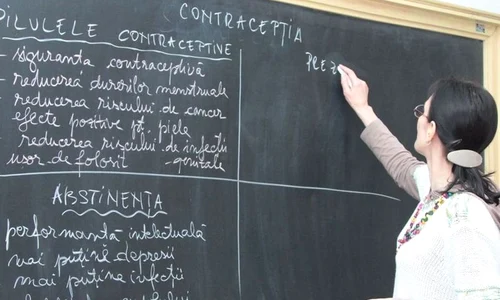 CONTRACEPȚIA
PILULELE CONTRACEPTIVE
- siguranta contraceptivă
- reducerea durerilor menstruale
- reducerea riscului de cancer
efecte pozitive pt. piele
- reducerea riscului de infecții
usor de folosit - genitale
PREZ
ABSTINENȚA
performantă intelectuală
mai puține depresii
mai puține infecții